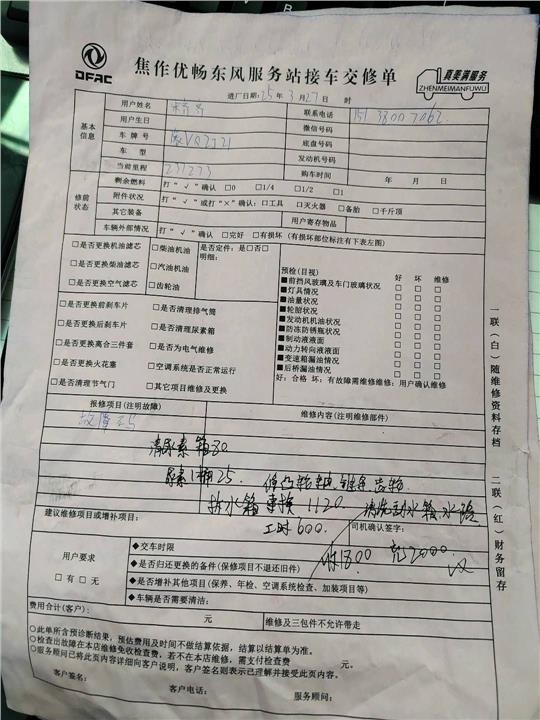 DFAC
焦作优畅东风服务站接车交修单
真美满服务
ZHENMEIMANFUWU
进厂日期:25年3月27日 时
基本信息
用户姓名
联系电话
用户生日
微信号码
车牌号
底盘号码
车型
发动机号码
当前里程 237273
购车时间 年 月 日
修前状态
剩余燃料 打“√”确认 □0 □1/4 □1/2 □1
附件状况 打“√”或打“×”确认:□工具 □灭火器 □备胎 □千斤顶
其它装备
用户寄存物品
车辆外部情况 打“√”确认 □完好 □有损坏(有损坏部位标注有下表左图)
□是否更换机油滤芯
□是否更换柴油滤芯
□是否更换空气滤芯
□柴油机油
□汽油机油
□齿轮油
是否定件:是□否□
明细:
预检(目视) 好 坏 维修
■前挡风玻璃及车门玻璃状况 □ □ □
■灯具情况 □ □ □
■油量状况 □ □ □
■轮胎状况 □ □ □
■发动机机油状况 □ □ □
■防冻防锈瓶状况 □ □ □
■制动液液面 □ □ □
■动力转向液液面 □ □ □
■变速箱漏油情况 □ □ □
■后桥漏油情况 □ □ □
好:合格 坏:有故障需维修维修:用户确认维修
□是否更换前刹车片
□是否更换后刹车片
□是否更换离合三件套
□是否更换火花塞
□是否清理节气门
□是否清理排气筒
□是否清理尿素箱
□是否为电气维修
□空调系统是否正常运行
□其它项目维修及更换
报修项目(注明故障)
维修内容(注明维修部件)
清尿素箱80
尿素1桶25.
拆水箱 1120.
工时600.
1800 2000
建议维修项目或增补项目:
司机确认签字:
用户要求
□有 □无
◆交车时限
◆是否归还更换的备件(保修项目不退还旧件)
◆是否增补其他项目(保养、年检、空调系统检查、加装项目等)
◆车辆是否需要清洁:
费用合计(客户): 元
维修及三包件不允许带走
○此单所含预诊断结果,预估费用及时间不做结算依据,结算以结算单为准。
○检查出故障在本店维修免收检查费,若不在本店维修,需支付检查费 元。
○服务顾问已将此页内容详细向客户说明,客户签名则表示已理解并接受此页内容。
客户签名:
客户电话:
服务顾问:
一联(白)随维修资料存档
二联(红)财务留存